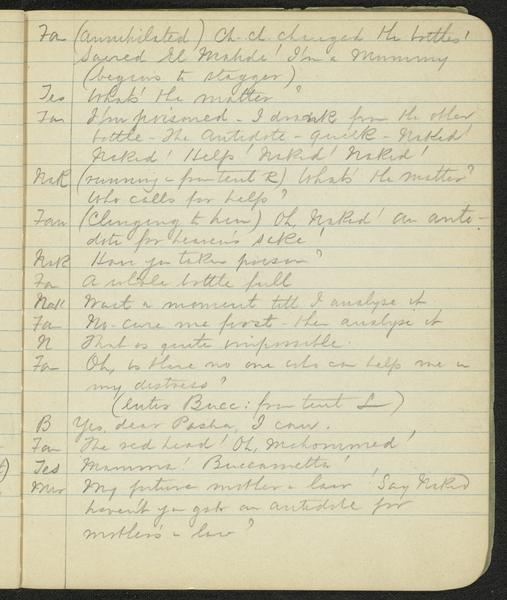 Fan (annihilated) Ch-ch-changed the bottles!
Sacred El Mahdi! I'm a Mummy
(begins to stagger)
Tes What's the matter?
Fan I'm poisoned - I drank from the other
bottle - The Antidote - quick - Naked!
Naked! Help! Naked! Naked!
Nak (running in from tent R) What's the matter?
Who calls for help?
Fan (Clinging to him) Oh, Naked! an anti-
dote for heaven's sake!
Nak Have you taken poison?
Fan A whole bottle full
Nak Wait a moment till I analyse it
Fa No - cure me first - then analyse it
N That is quite impossible.
Fan Oh, is there no one who can help me in
my distress?
(enter Bucc: from tent L)
B Yes, dear Pasha, I can.
Fan The red head! Oh, Mahommed!
Tes Mamma! Buccametta!
My future mother in law! Say Naked
haven't you got an antidote for
mothers in law?